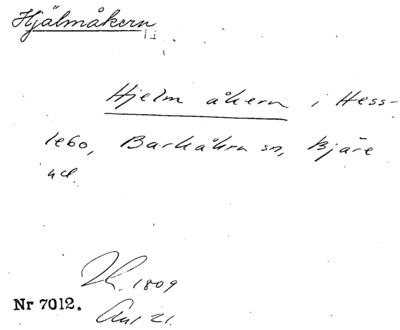 Hjälmåkern
Hjelm åkern i Hess-
lebo, Barkåkra sn, Bjäre
hd.
1809
Nr 7012.